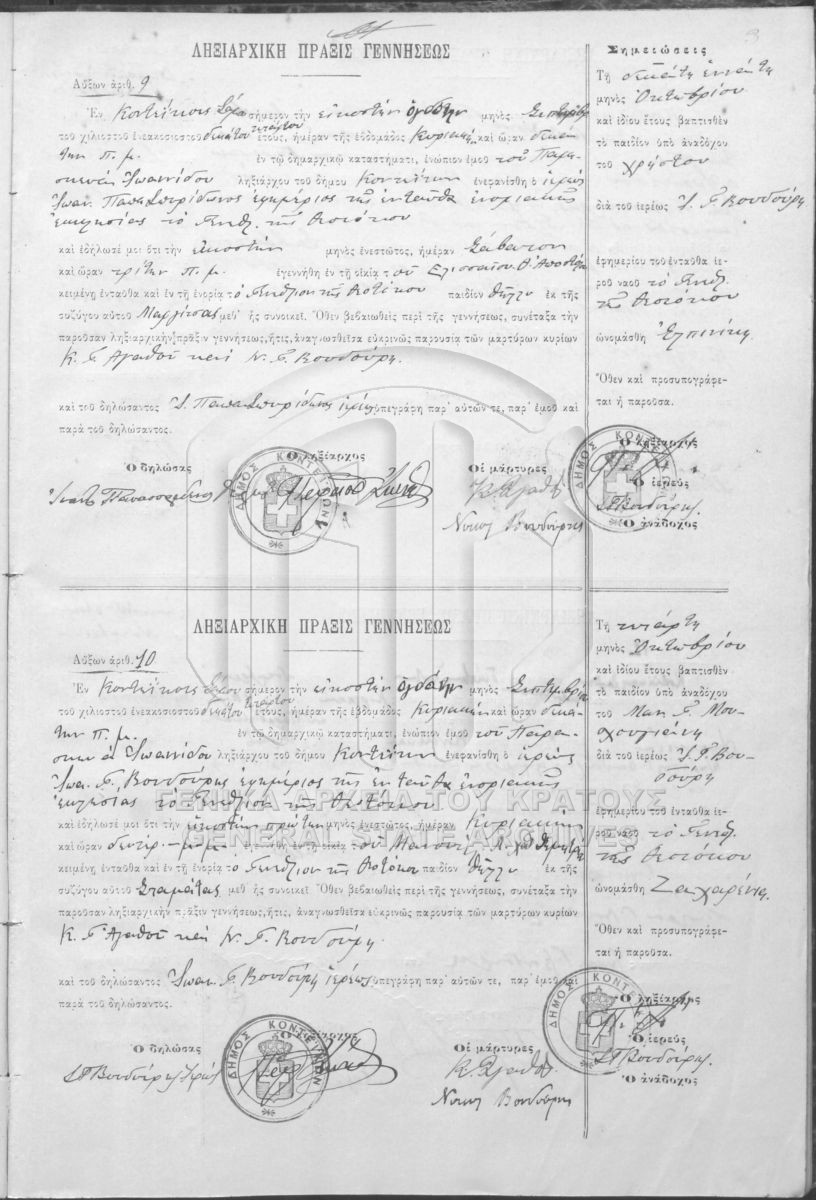 3
ΛΗΞΙΑΡΧΙΚΗ ΠΡΑΞΙΣ ΓΕΝΝΗΣΕΩΣ
Αὔξων ἀριθ. 9
Ἐν Κοντείκοις σήμερον τὴν εἰκοστὴν ὀγδόην μηνὸς Σεπτεμβρίου
τοῦ χιλιοστοῦ ἐνεακοσιοστοῦ δεκάτου τετάρτου ἔτους, ἡμέραν τῆς ἑβδομάδος Κυριακὴν καὶ ὥραν δεκά
την π. μ. ἐν τῷ δημαρχικῷ καταστήματι, ἐνώπιον ἐμοῦ τοῦ Παρα
σκευᾶ Ἰωαννίδου ληξιάρχου τοῦ δήμου ἐνεφανίσθη ὁ ἱερεὺς
Ἰωαν. Παπα Σπυρίδωνος ἐφημέριος τῆς ἐνταῦθα ἐνοριακῆς
ἐκκλησίας τὸ Γενέθλ. τῆς Θεοτόκου
καὶ ἐδήλωσέ μοι ὅτι τὴν εἰκοστὴν μηνὸς ἐνεστῶτος, ἡμέραν Σάββατον
καὶ ὥραν τρίτην π. μ. ἐγεννήθη ἐν τῇ οἰκίᾳ τοῦ Ἐλισσαίου Θ. Ἀποστόλου
κειμένῃ ἐνταῦθα καὶ ἐν τῇ ἐνορίᾳ τὸ Γενέθλιον τῆς Θεοτόκου παιδίον θῆλυ ἐκ τῆς
συζύγου αὐτοῦ μεθ' ἧς συνοικεῖ. Ὅθεν βεβαιωθεὶς περὶ τῆς γεννήσεως, συνέταξα τὴν
παροῦσαν ληξιαρχικὴν πρᾶξιν γεννήσεως, ἥτις, ἀναγνωσθεῖσα εὐκρινῶς παρουσίᾳ τῶν μαρτύρων κυρίων
Κ. Γ. Ἀγαθοῦ καὶ Ν. Γ. Βουδούρη.
καὶ τοῦ δηλώσαντος Ἰ. Παπα Σπυρίδωνος ἱερέως ὑπεγράφη παρ' αὐτῶν τε, παρ' ἐμοῦ καὶ
παρὰ τοῦ δηλώσαντος.
Ὁ δηλώσας Ὁ ληξίαρχος Οἱ μάρτυρες
Κ. Ἀγαθός
Νικολ Βουδούρης
ΔΗΜΟΣ
Σημειώσεις
Τῇ δεκάτῃ ἐννάτῃ
μηνὸς Ὀκτωβρίου
καὶ ἰδίου ἔτους βαπτισθὲν
τὸ παιδίον ὑπὸ ἀναδόχου
τοῦ Χρήστου
διὰ τοῦ ἱερέως Ἰ. Γ. Βουδούρη
ἐφημερίου τοῦ ἐνταῦθα ἱε-
ροῦ ναοῦ τὸ Γενεθλ.
τῆς Θεοτόκου
ὠνομάσθη Ἐλπινίκη
Ὅθεν καὶ προσυπογράφε-
ται ἡ παροῦσα.
Ὁ ληξίαρχος
Ὁ ἱερεὺς
ΙΓΒουδούρης.
Ὁ ἀνάδοχος
ΛΗΞΙΑΡΧΙΚΗ ΠΡΑΞΙΣ ΓΕΝΝΗΣΕΩΣ
Αὔξων ἀριθ. 10
Ἐν Κοντείκοις σήμερον τὴν εἰκοστὴν ὀγδόην μηνὸς Σεπτεμβρίου
τοῦ χιλιοστοῦ ἐνεακοσιοστοῦ δεκάτου τετάρτου ἔτους, ἡμέραν τῆς ἑβδομάδος Κυριακὴν καὶ ὥραν δεκά-
την π. μ. ἐν τῷ δημαρχικῷ καταστήματι, ἐνώπιον ἐμοῦ τοῦ Παρα-
σκευᾶ Ἰωαννίδου ληξιάρχου τοῦ δήμου ἐνεφανίσθη ὁ ἱερεὺς
Ἰωαν. Γ. Βουδούρης ἐφημέριος τῆς ἐνταῦθα ἐνοριακῆς
ἐκκλησίας τὸ Γενέθλιον τῆς Θεοτόκου
καὶ ἐδήλωσέ μοι ὅτι τὴν εἰκοστὴν πρώτην μηνὸς ἐνεστῶτος, ἡμέραν Κυριακὴν
καὶ ὥραν ἐγεννήθη ἐν τῇ οἰκίᾳ τοῦ
κειμένῃ ἐνταῦθα καὶ ἐν τῇ ἐνορίᾳ τὸ Γενέθλιον τῆς Θεοτόκου παιδίον θῆλυ ἐκ τῆς
συζύγου αὐτοῦ Σταματίας μεθ' ἧς συνοικεῖ. Ὅθεν βεβαιωθεὶς περὶ τῆς γεννήσεως, συνέταξα τὴν
παροῦσαν ληξιαρχικὴν πρᾶξιν γεννήσεως, ἥτις, ἀναγνωσθεῖσα εὐκρινῶς παρουσίᾳ τῶν μαρτύρων κυρίων
Κ. Γ. Ἀγαθοῦ καὶ Ν. Γ. Βουδούρη
καὶ τοῦ δηλώσαντος Ἰωαν. Γ. Βουδούρη ἱερέως ὑπεγράφη παρ' αὐτῶν τε, παρ' ἐμοῦ καὶ
παρὰ τοῦ δηλώσαντος.
Ὁ δηλώσας Ὁ ληξίαρχος Οἱ μάρτυρες
ΙΓΒουδούρης Ἱερεύς
Κ. Ἀγαθός
Νικολ Βουδούρης
ΔΗΜΟΣ
Τῇ τετάρτῃ
μηνὸς Ὀκτωβρίου
καὶ ἰδίου ἔτους βαπτισθὲν
τὸ παιδίον ὑπὸ ἀναδόχου
τοῦ Μαν. Γ.
διὰ τοῦ ἱερέως Ἰ. Γ. Βου-
δούρη
ἐφημερίου τοῦ ἐνταῦθα ἱε-
ροῦ ναοῦ τὸ Γενεθλ.
τῆς Θεοτόκου
ὠνομάσθη Ζαχαρένια
Ὅθεν καὶ προσυπογράφε-
ται ἡ παροῦσα.
Ὁ ληξίαρχος
Ὁ ἱερεὺς
ΙΓΒουδούρης.
Ὁ ἀνάδοχος
ΓΕΝΙΚΑ ΑΡΧΕΙΑ ΤΟΥ ΚΡΑΤΟΥΣ
GENERAL STATE ARCHIVES